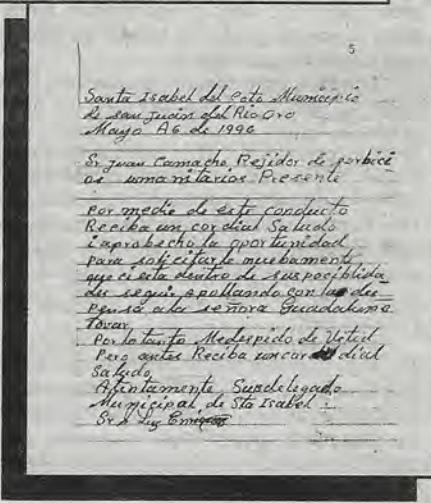 5
Santa Isabel del Coto Municipio
de san Juan del Rio Qro
Mayo A6 de 1996
Sr Juan Camacho Rejidor de serbici
os umanitarios Presente
Por medio de este conducto
Reciba un cordial Saludo
i aprobecho la oportunidad
para solicitarle nuebamente
que ci esta dentro de sus pociblida
des seguir apollando con la des
pensa a la señora Guadalupe
Tovar
Por lo tanto Me despido de Usted
Pero antes Reciba un cor dial
Saludo
Atentamente Susdelegado
Municipal de Sta Isabel
Sr Luz